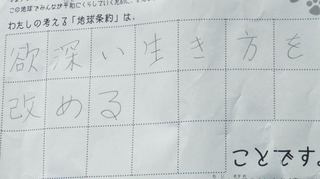 この地球でみんなが平和にくらしていくために、
わたしの考える「地球条約」は、
欲深い生き方を
改める
ことです。